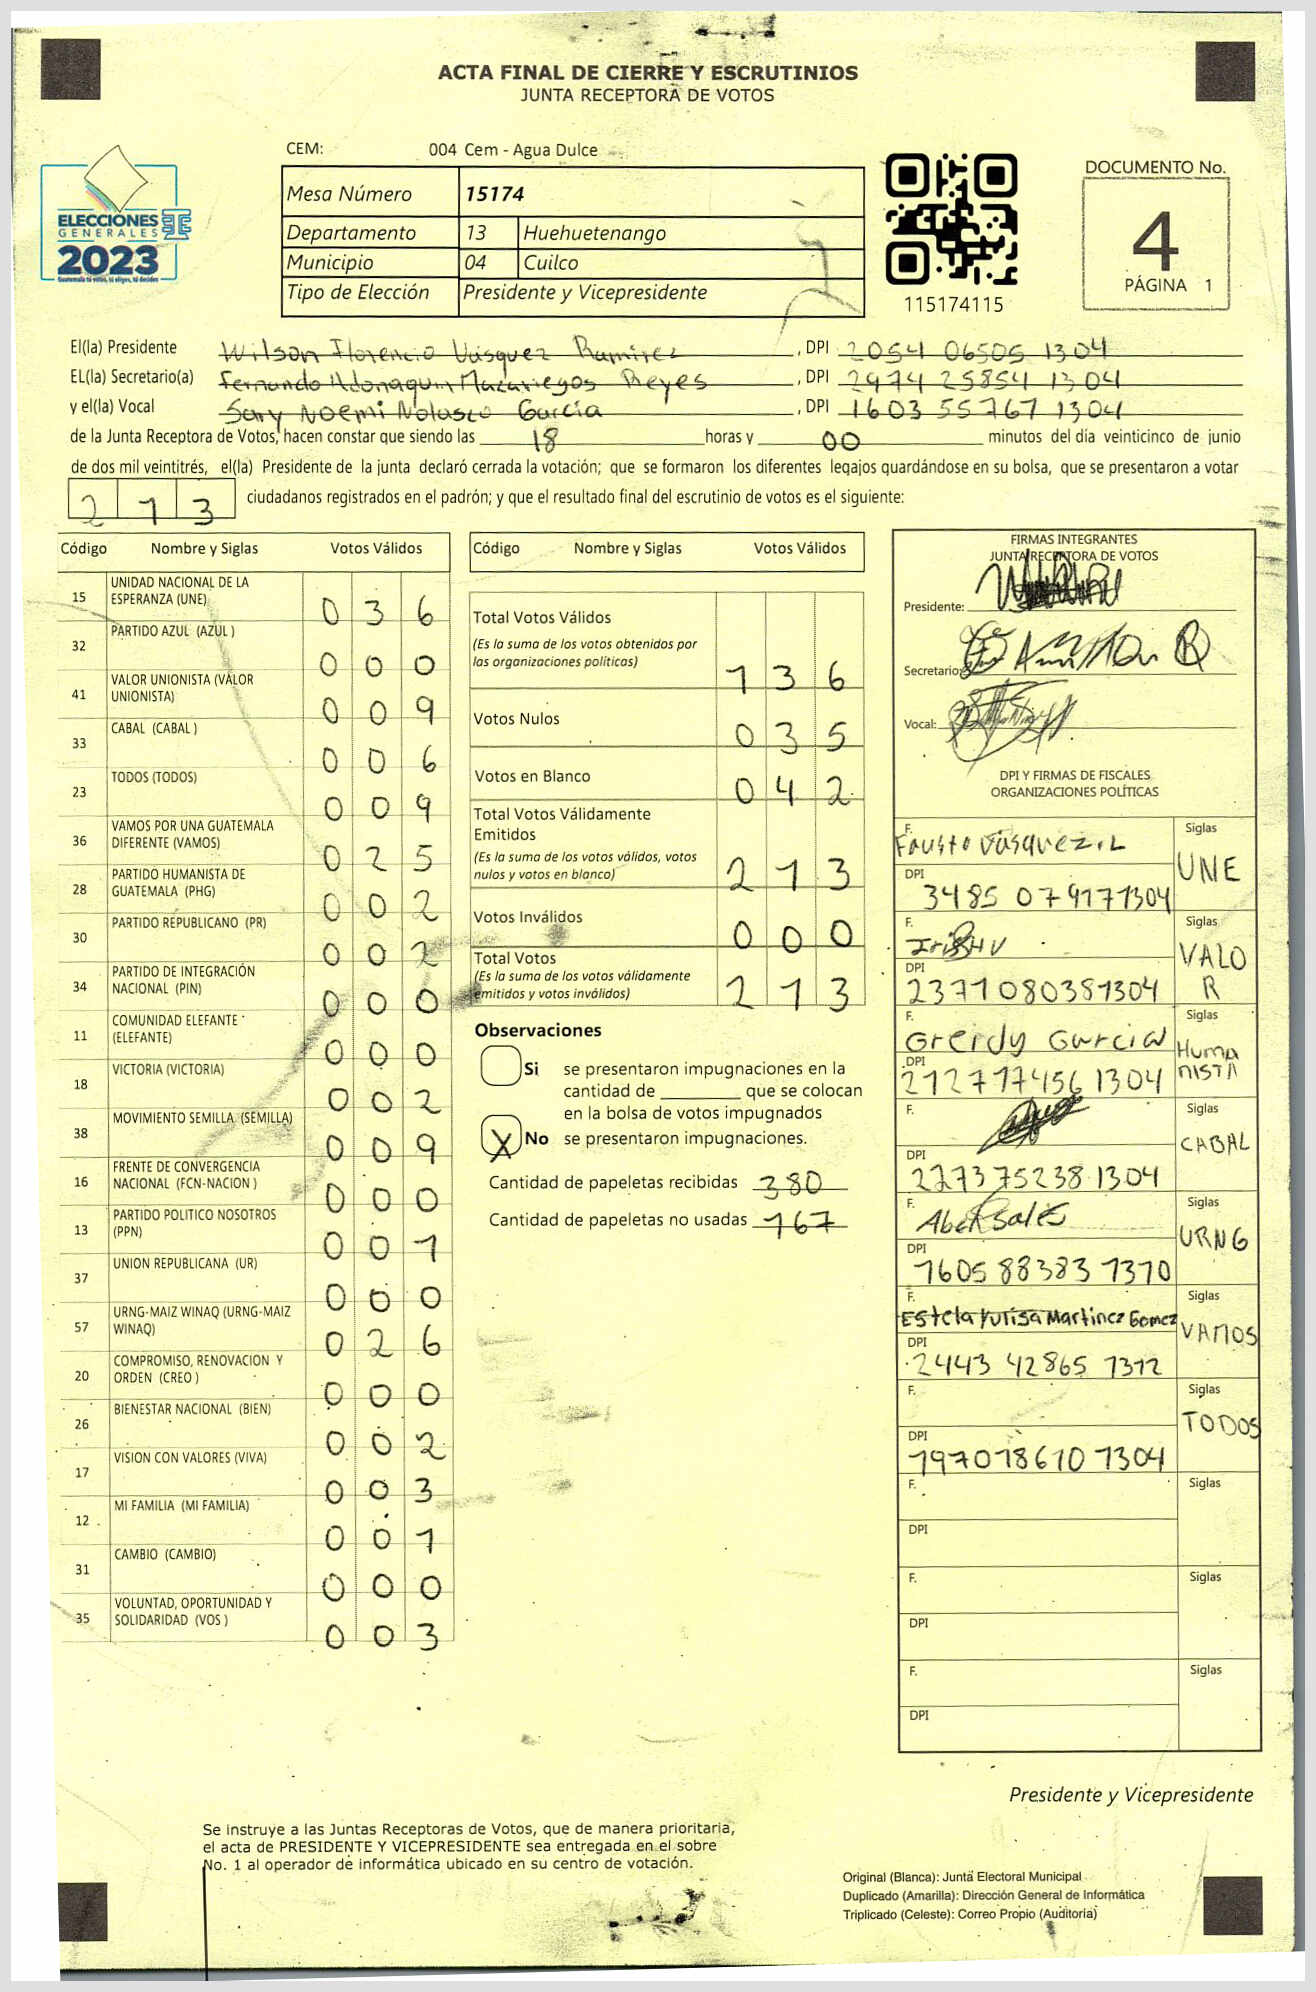 ACTA FINAL DE CIERRE Y ESCRUTINIOS
JUNTA RECEPTORA DE VOTOS
ELECCIONES
GENERALES
2023
Guatemala tú votas, tú eliges, tú decides
CEM: 004 Cem - Agua Dulce
Mesa Número 15174
Departamento 13 Huehuetenango
Municipio 04 Cuilco
Tipo de Elección Presidente y Vicepresidente
115174115
DOCUMENTO No.
4
PÁGINA 1
El(la) Presidente Wilson Florencio Vásquez Ramirez, DPI 2054 06505 1304
EL(la) Secretario(a) Fernando Mazariegos Reyes, DPI 2974 25854 1304
y el(la) Vocal Sary Noemi Nolasco García, DPI 1603 55767 1304
de la Junta Receptora de Votos, hacen constar que siendo las 18 horas y 00 minutos del día veinticinco de junio
de dos mil veintitrés, el(la) Presidente de la junta declaró cerrada la votación; que se formaron los diferentes legajos guardándose en su bolsa, que se presentaron a votar
213 ciudadanos registrados en el padrón; y que el resultado final del escrutinio de votos es el siguiente:
Código Nombre y Siglas Votos Válidos
15 UNIDAD NACIONAL DE LA ESPERANZA (UNE) 0 3 6
32 PARTIDO AZUL (AZUL ) 0 0 0
41 VALOR UNIONISTA (VALOR UNIONISTA) 0 0 9
33 CABAL (CABAL ) 0 0 6
23 TODOS (TODOS) 0 0 9
36 VAMOS POR UNA GUATEMALA DIFERENTE (VAMOS) 0 2 5
28 PARTIDO HUMANISTA DE GUATEMALA (PHG) 0 0 2
30 PARTIDO REPUBLICANO (PR) 0 0 2
34 PARTIDO DE INTEGRACIÓN NACIONAL (PIN) 0 0 0
11 COMUNIDAD ELEFANTE (ELEFANTE) 0 0 0
18 VICTORIA (VICTORIA) 0 0 2
38 MOVIMIENTO SEMILLA (SEMILLA) 0 0 9
16 FRENTE DE CONVERGENCIA NACIONAL (FCN-NACION ) 0 0 0
13 PARTIDO POLITICO NOSOTROS (PPN) 0 0 1
37 UNION REPUBLICANA (UR) 0 0 0
57 URNG-MAIZ WINAQ (URNG-MAIZ WINAQ) 0 2 6
20 COMPROMISO, RENOVACION Y ORDEN (CREO ) 0 0 0
26 BIENESTAR NACIONAL (BIEN) 0 0 2
17 VISION CON VALORES (VIVA) 0 0 3
12 MI FAMILIA (MI FAMILIA) 0 0 1
31 CAMBIO (CAMBIO) 0 0 0
35 VOLUNTAD, OPORTUNIDAD Y SOLIDARIDAD (VOS ) 0 0 3
Código Nombre y Siglas Votos Válidos
Total Votos Válidos
(Es la suma de los votos obtenidos por
las organizaciones políticas) 1 3 6
Votos Nulos 0 3 5
Votos en Blanco 0 4 2
Total Votos Válidamente
Emitidos
(Es la suma de los votos válidos, votos
nulos y votos en blanco) 2 1 3
Votos Inválidos 0 0 0
Total Votos
(Es la suma de los votos válidamente
emitidos y votos inválidos) 2 1 3
Observaciones
Si se presentaron impugnaciones en la
cantidad de ________ que se colocan
en la bolsa de votos impugnados
X No se presentaron impugnaciones.
Cantidad de papeletas recibidas 380
Cantidad de papeletas no usadas 167
FIRMAS INTEGRANTES
JUNTA RECEPTORA DE VOTOS
Presidente:
Secretario:
Vocal:
DPI Y FIRMAS DE FISCALES
ORGANIZACIONES POLÍTICAS
F. Fausto Vásquez.L Siglas UNE
DPI 3485 07917 1304
F. Siglas VALOR
DPI 2371 08038 1304
F. Greidy Garcia Siglas Humanista
DPI 2127 17456 1304
F. Siglas CABAL
DPI 2273 75238 1304
F. Siglas URNG
DPI 1605 88383 1310
F. Estela Yulisa Martinez Gomez Siglas VAMOS
DPI 2443 42865 1312
F. Siglas TODOS
DPI 1970 18610 1304
F. Siglas
DPI
F. Siglas
DPI
F. Siglas
DPI
Presidente y Vicepresidente
Se instruye a las Juntas Receptoras de Votos, que de manera prioritaria,
el acta de PRESIDENTE Y VICEPRESIDENTE sea entregada en el sobre
No. 1 al operador de informática ubicado en su centro de votación.
Original (Blanca): Junta Electoral Municipal
Duplicado (Amarilla): Dirección General de Informática
Triplicado (Celeste): Correo Propio (Auditoria)